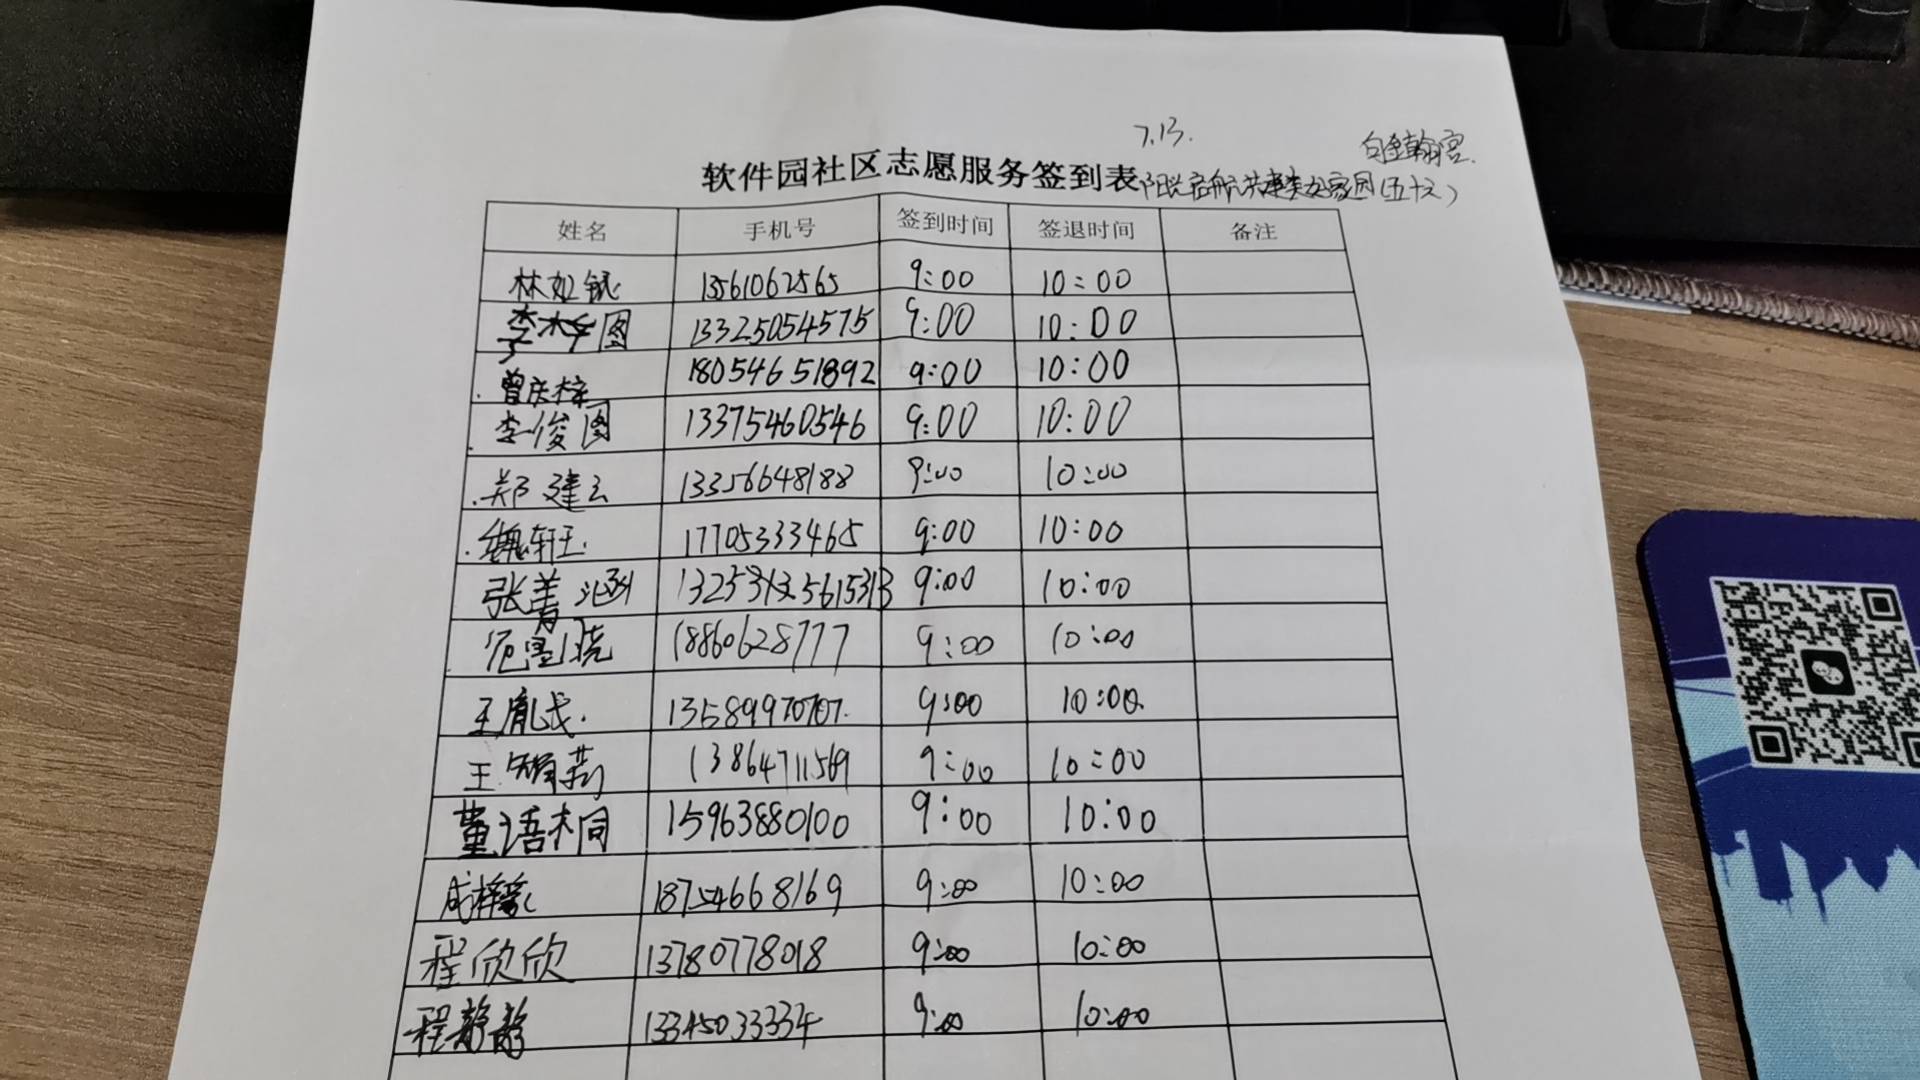 7.13.
软件园社区志愿服务签到表 共建美好家园(五十六)
姓名 手机号 签到时间 签退时间 备注
林如 13561062565 9:00 10:00
李 图 13325054575 9:00 10:00
曾庆梓 18054651892 9:00 10:00
李俊图 13375460546 9:00 10:00
郑建云 13356648188 9:00 10:00
魏轩玉 17705333465 9:00 10:00
张菁涵 9:00 10:00
范 晓 18860628777 9:00 10:00
王胤戈. 13589970707. 9:00 10:00
王 莉 13864711569 9:00 10:00
董语桐 15963880100 9:00 10:00
成梓 18754668169 9:00 10:00
程欣欣 13780778018 9:00 10:00
程静静 13345033334 9:00 10:00